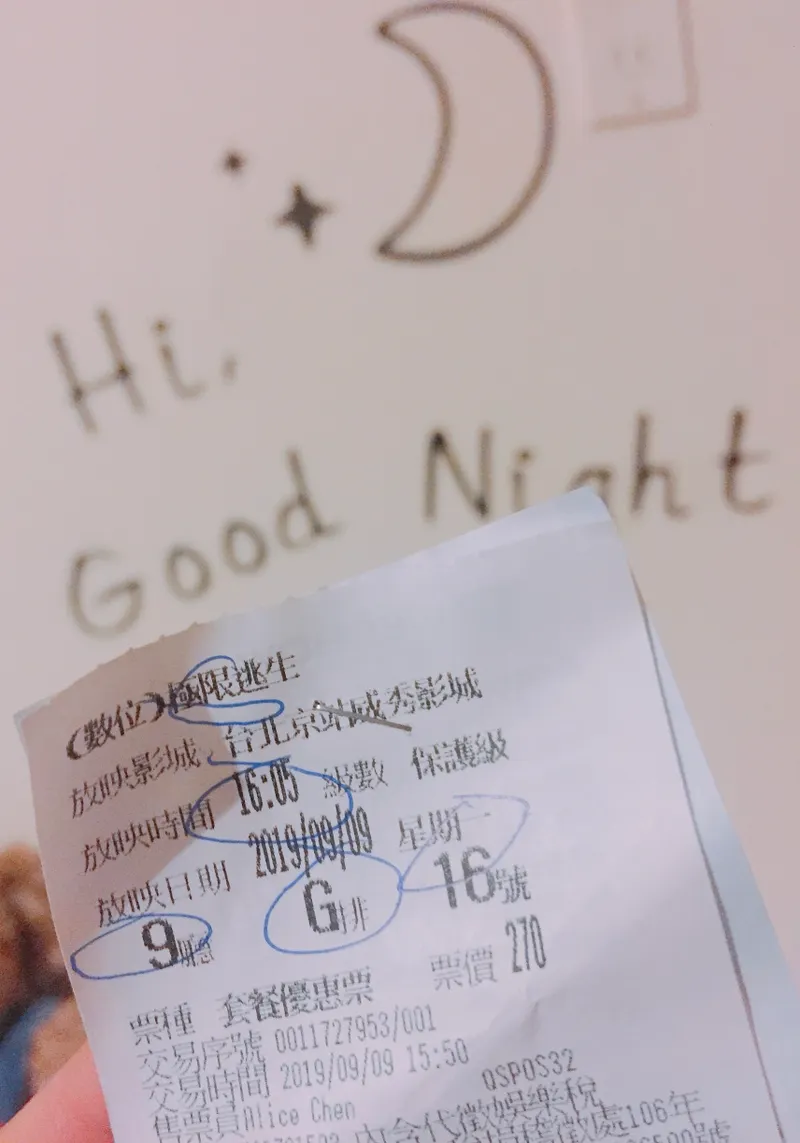 Hi,
Good Night
(數位)極限逃生
放映影城 台北京站威秀影城
放映時間 16:05 級數 保護級
放映日期 2019/09/09 星期一
9廳 G排 16號
票種 套餐優惠票 票價 270
交易序號 0011727953/001
交易時間 2019/09/09 15:50
售票員Alice Chen QSPOS32
內含代徵娛樂稅
106年